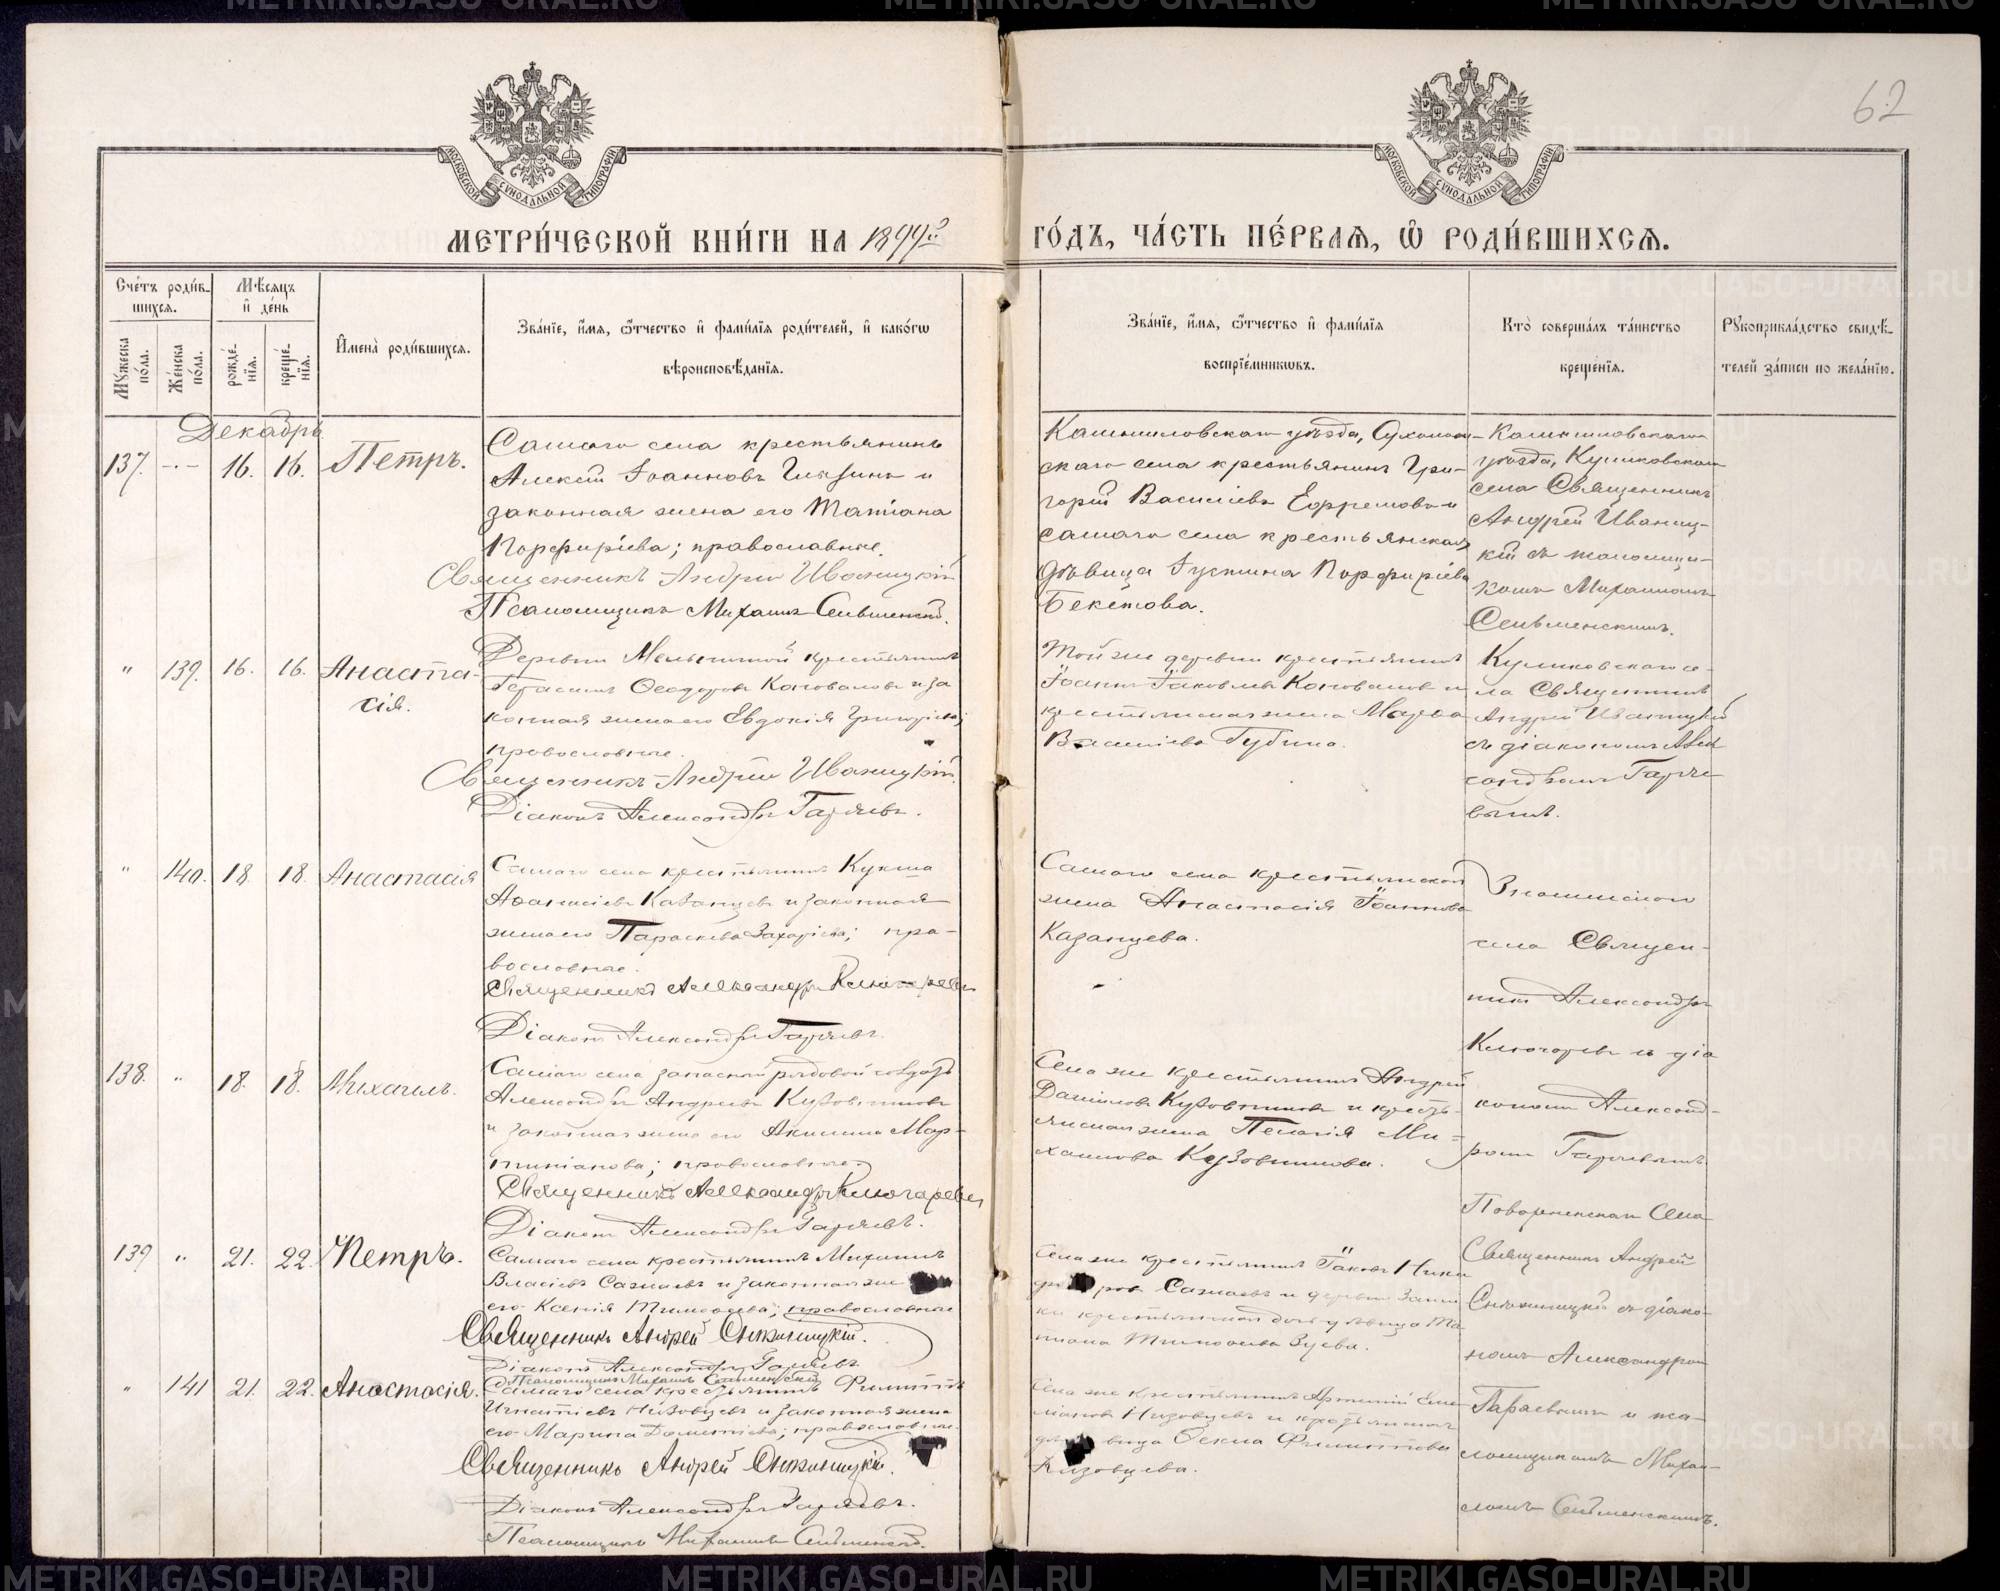 62
МЕТРИ́ЧЕСКОЙ КНИ́ГИ НА 1899й ГО́ДЪ, ЧА́СТЬ ПЕ́РВАѦ, Ѡ РОДИ́ВШИХСѦ.
МОСКОВСКОЙ СѴНОДАЛЬНОЙ ТИПОГРАФІИ
МОСКОВСКОЙ СѴНОДАЛЬНОЙ ТИПОГРАФІИ
Сче́тъ роди́в-
шихсѧ.
Мꙋ́жеска по́ла.
Же́нска по́ла.
Мѣ́сѧцъ
и҆ де́нь
рожде́-
нїѧ.
креще́-
нїѧ.
И҆мена̀ роди́вшихсѧ.
Зва́нїе, и҆́мѧ, ѻ҆́тчество и҆ фами́лїѧ роди́телей, и҆ како́гѡ
вѣроисповѣ́данїѧ.
Зва́нїе, и҆́мѧ, ѻ҆́тчество и҆ фами́лїѧ
воспрїе́мникѡвъ.
Кто̀ соверша́лъ та́инство
креще́нїѧ.
Рꙋкоприкла́дство свидѣ́-
телей за́писи по жела́нїю.
Декабрь
137. -·- 16. 16. Петръ.
Самаго села крестьянинъ
Алексій Іоанновъ и
законная жена его Татіана
Порфиріева; православные.
Священникъ Андрей Иваницкій
Псаломщикъ Михаилъ Сельменскій.
Камышловскаго уѣзда,
скаго села крестьянинъ Гри-
горій Василіевъ Ефремовъ и
самаго села крестьянская
дѣвица Іустина Порфиріева
Бекетова.
Камышловскаго
уѣзда, Куликовскаго
села Священникъ
Андрей Иваниц-
кій съ псаломщи-
комъ Михаиломъ
Сельменскимъ.
" 139. 16. 16. Анаста-
сія.
Деревни Мельничной крестьянинъ
Герасимъ Ѳеодоровъ Коноваловъ и за
конная жена его Евдокія Григоріева;
православные.
Священникъ Андрей Иваницкій.
Діаконъ Александръ Гаряевъ.
Той же деревни крестьянинъ
Іоаннъ Іаковлевъ Коноваловъ и
крестьянская жена Марѳа
Василіева Губина.
Куликовскаго се-
ла Священникъ
Андрей Иваницкій
съ діакономъ Алек
сандромъ Гаряе-
вымъ.
" 140. 18. 18. Анастасія
Самаго села крестьянинъ Кукша
Аѳанасіевъ Казанцевъ и законная
жена его Параскева Захаріева; пра-
вославные.
Священникъ Александръ Ключаревъ
Діаконъ Александръ Гаряевъ.
Самаго села крестьянская
жена Анастасія Іоаннова
Казанцева.
Знаменскаго
села Священ-
никъ Александръ
Ключаревъ съ діа
кономъ Александ-
ромъ Гаряевымъ
138. " 18. 18. Михаилъ.
Самаго села запасной рядовой солдатъ
Александръ Андреевъ Кузовниковъ
и законная жена его Акилина Мар-
тиніанова; православные.
Священникъ Александръ Ключаревъ
Діаконъ Александръ Гаряевъ.
Села же крестьянинъ Андрей
Даніиловъ Кузовниковъ и кресть-
янская жена Пелагія Ми-
хаилова Кузовникова.
139 " 21. 22. Петръ.
Самаго села крестьянинъ Михаилъ
Власіевъ и законная же
его Ксенія Тимоѳеева; православные
Священникъ Андрей Снѣжницкій.
Діаконъ Александръ Гаряевъ
Псаломщикъ Михаилъ Сельменскій
Села же крестьянинъ Іаковъ Ники
ровъ и деревни
крестьянская дочь дѣвица Та
тіана Тимоѳеева Зуева.
Поварненскаго Села
Священникъ Андрей
Снѣжницкій съ діако-
номъ Александромъ
Гаряевымъ и пса-
ломщикомъ Михаи-
ломъ Сельменскимъ.
" 141 21. 22. Анастасія.
Самаго села крестьянинъ Филиппъ
Игнатіевъ Низовцевъ и законная жена
его Марина Дометіева; православные
Священникъ Андрей Снѣжницкій.
Діаконъ Александръ Гаряевъ.
Псаломщикъ Михаилъ Сельменскій.
Села же крестьянинъ Артемій Еме
ліановъ Низовцевъ и крестьянская
вица Ѳекла Филиппова
Низовцева.
METRIKI.GASO-URAL.RU